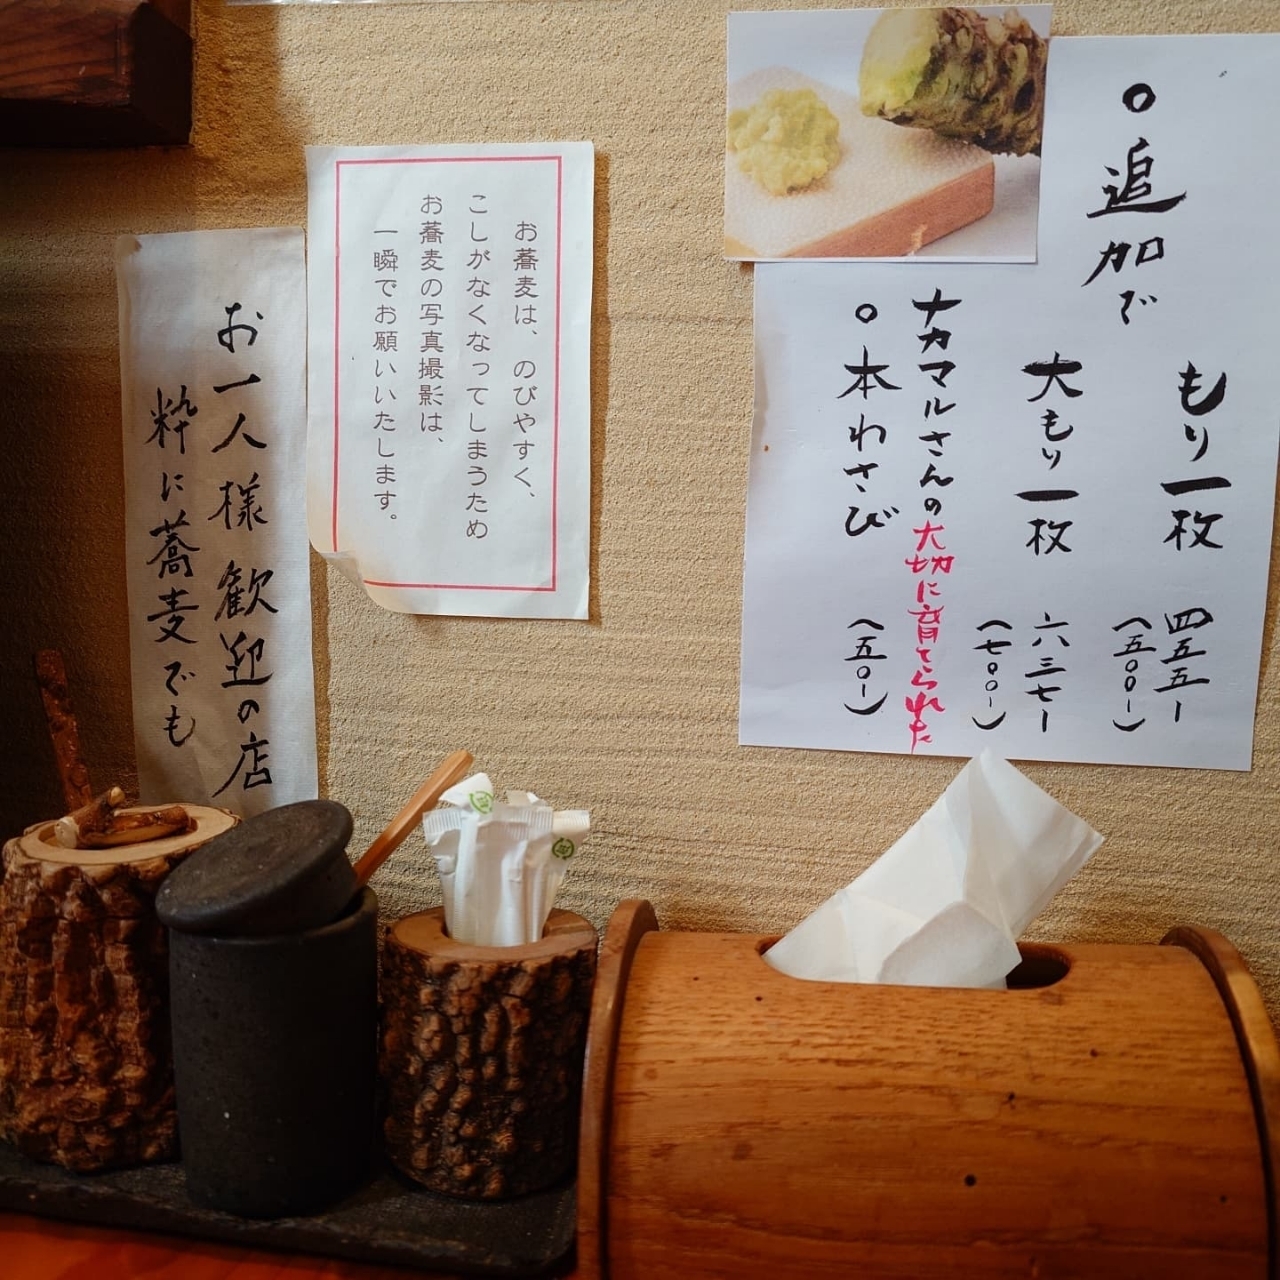 ○追加で
もり一枚
四五五ー
(五〇〇ー)
大もり一枚
六三七ー
(七〇〇ー)
ナカマルさんの大切に育てられた
○本わさび
(五〇ー)
お蕎麦は、のびやすく、
こしがなくなってしまうため
お蕎麦の写真撮影は、
一瞬でお願いいたします。
お一人様歓迎の店
粋に蕎麦でも